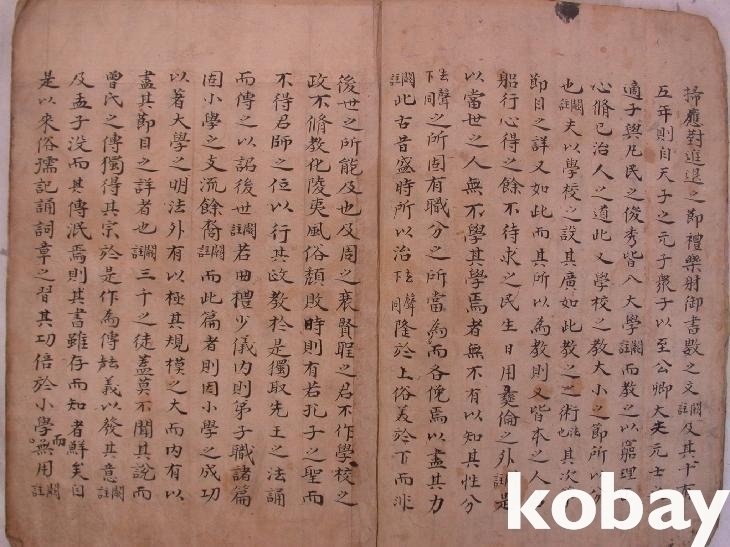 掃應對進退之節禮樂射御書數之文闕註及其十有
五年則自天子之元子衆子以至公卿大夫元士之
適子與凡民之俊秀皆入大學闕註而教之以窮理
心脩已治人之道此又學校之教大小之節所以分
也闕註夫以學校之設其廣如此教之之術去也其次
節目之詳又如此而其所以為教則又皆本之人
躬行心得之餘不待求之民生日用彛倫之外是
以當世之人無不學其學焉者無不有以知其性分
去聲下同之所固有職分之所當為而各俛焉以盡其力
闕註此古昔盛時所以治去聲下同隆於上俗羙於下而非
後世之所能及也及周之衰賢聖之君不作學校之
政不脩教化陵夷風俗頹敗時則有若孔子之聖而
不得君師之位以行其政教於是獨取先王之法誦
而傳之以詔後世闕註若曲禮少儀內則弟子職諸篇
固小學之支流餘裔闕註而此篇者則因小學之成功
以著大學之明法外有以極其規模之大而內有以
盡其節目之詳者也闕註三千之徒蓋莫不聞其說而
曾氏之傳獨得其宗於是作為傳義以發其意闕註
及孟子沒而其傳泯焉則其書雖存而知者鮮矣自
是以來俗儒記誦詞章之習其功倍於小學而無用闕註
kobay